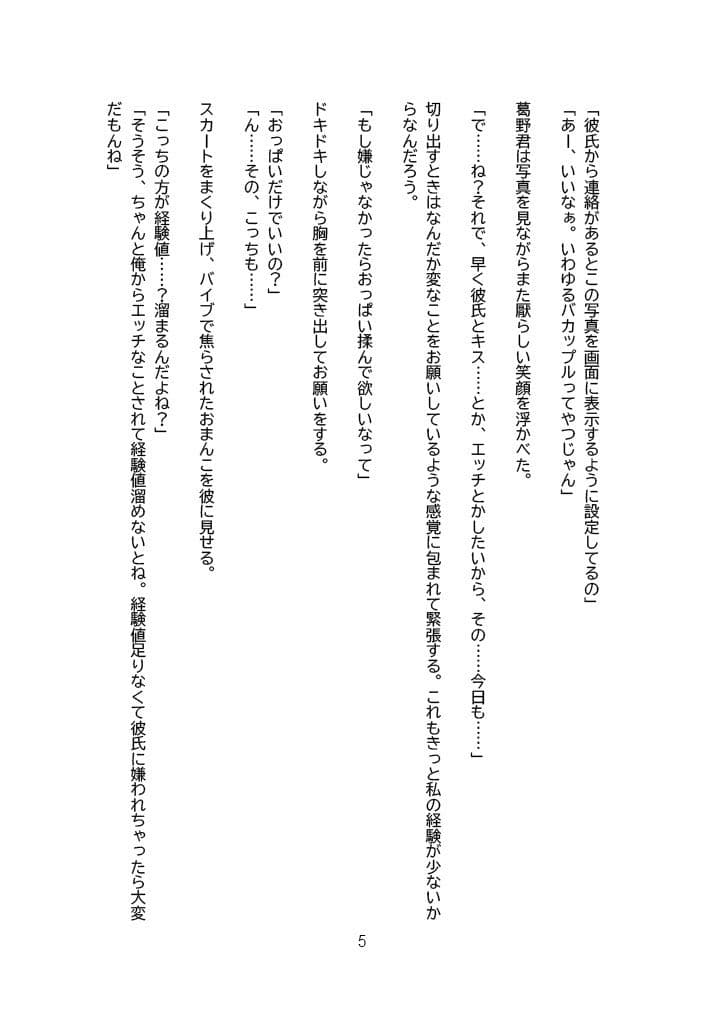 「彼氏から連絡があるとこの写真を画面に表示するように設定してるの」
「あー、いいなぁ。いわゆるバカップルってやつじゃん」
葛野君は写真を見ながらまた厭らしい笑顔を浮かべた。
「で……ね？それで、早く彼氏とキス……とか、エッチとかしたいから、その……今日も……」
切り出すときはなんだか変なことをお願いしているような感覚に包まれて緊張する。これもきっと私の経験が少ないか
らなんだろう。
「もし嫌じゃなかったらおっぱい揉んで欲しいなって」
ドキドキしながら胸を前に突き出してお願いをする。
「おっぱいだけでいいの？」
「ん……その、こっちも……」
スカートをまくり上げ、バイブで焦らされたおまんこを彼に見せる。
「こっちの方が経験値……？溜まるんだよね？」
「そうそう、ちゃんと俺からエッチなことされて経験値溜めないとね。経験値足りなくて彼氏に嫌われちゃったら大変
だもんね」
5